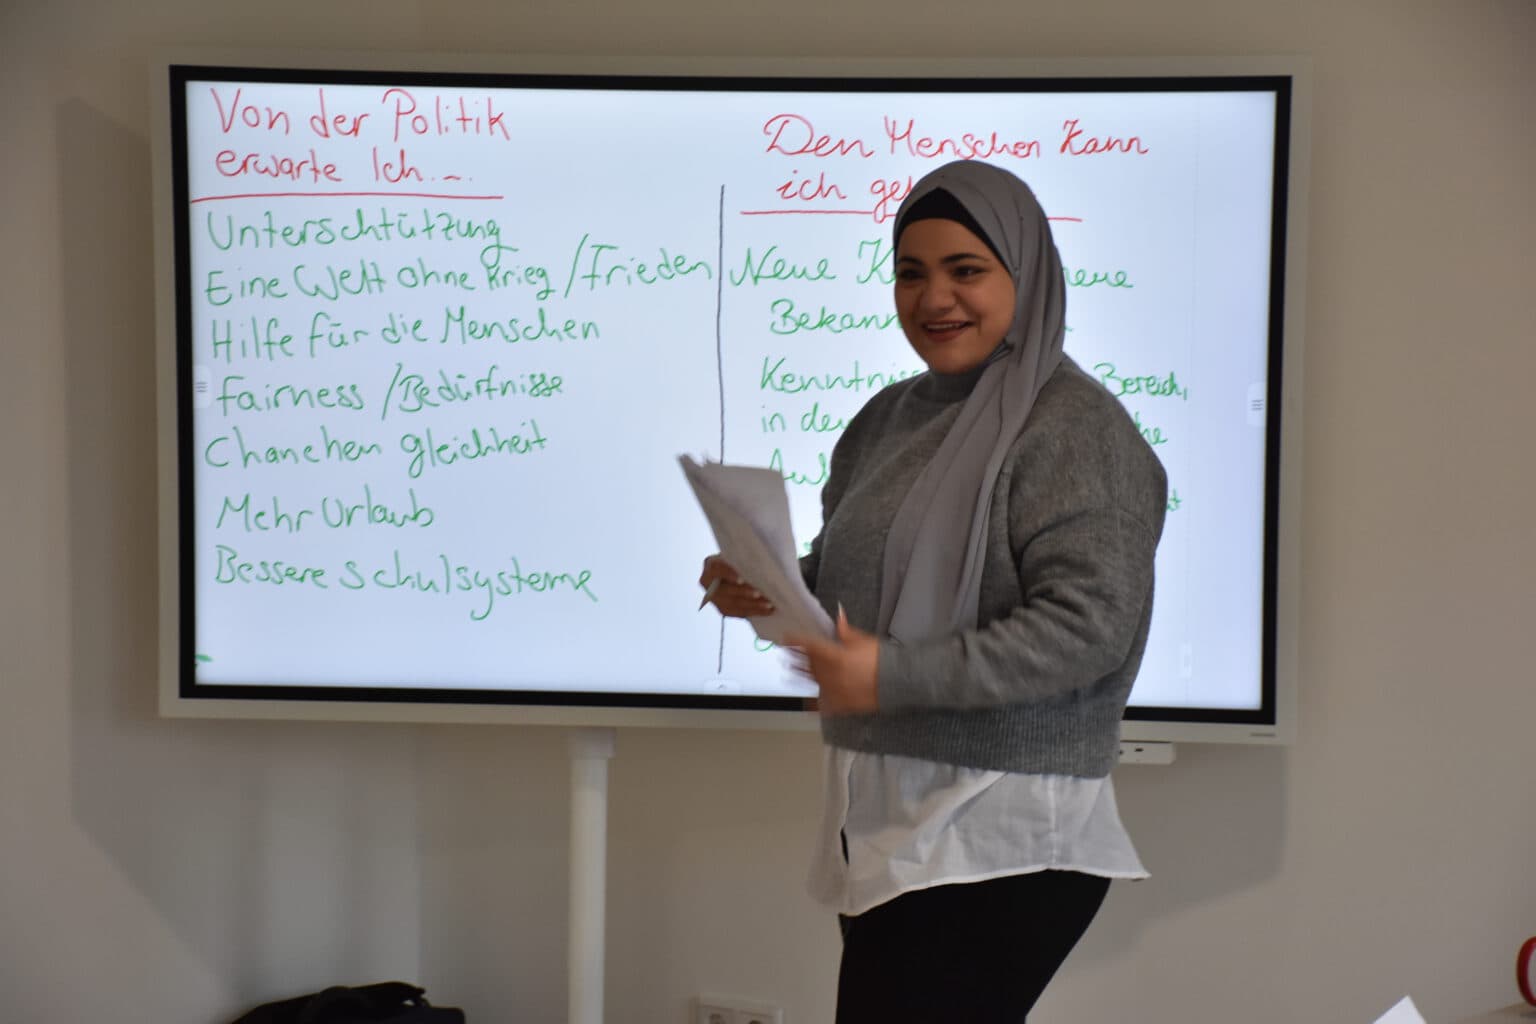 Von der Politik
erwarte Ich...
Unterschtützung
Eine Welt ohne Krieg / Frieden
Hilfe für die Menschen
Fairness / Bedürfnisse
Chanchen gleichheit
Mehr Urlaub
Bessere schulsysteme
Den Menschen kann
ich
Neue
Bereich,
in